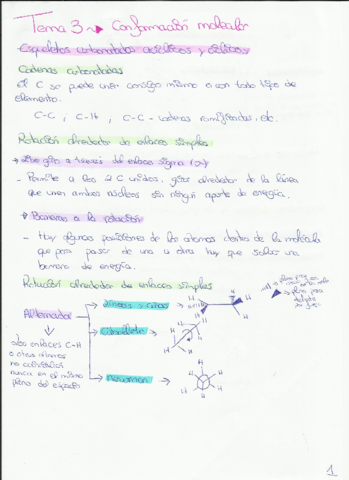 Tema 3 → Conformación molecular
Esqueletos carbonatados acíclicos y cíclicos
Cadenas carbonatadas
El C se puede unir consigo mismo o con todo tipo de
elemento.
C-C, C-H, C-C-cadenas ramificadas, etc.
Rotación alrededor de enlaces simples
→ Libre giro a través del enlace sigma (σ)
- Permite a los 2 C unidos, girar alrededor de la línea
que unen ambos núcleos sin ningún aporte de energía.
Barreras a la rotación
- Hay algunas posiciones de los átomos dentro de la molécula
que para pasar de una a otra hay que saltar una
barrera de energía.
Rotación alrededor de enlaces simples
Alternada
Líneas y cuñas
Caballete
Newman
Los enlaces C-H
o otros átomos
no
nunca en el mismo
plano del espacio
H
H
H
H
H
H
H
H
H
H
H
H
plano
plano para
1